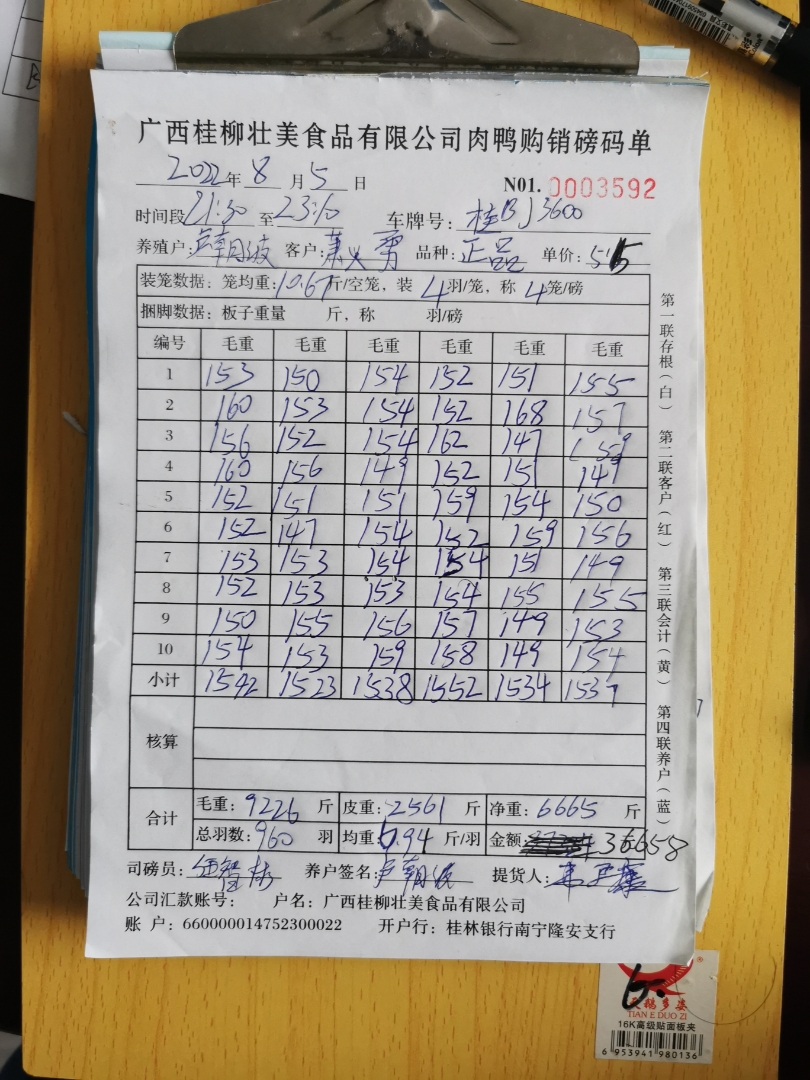 广西桂柳壮美食品有限公司肉鸭购销磅码单
2022年 8 月 5 日 N01. 0003592
时间段 21:30 至 23:10 车牌号: 桂BJ3600
养殖户: 客户: 品种: 正品 单价: 5.5
装笼数据: 笼均重: 10.67 斤/空笼, 装 4 羽/笼, 称 4 笼/磅
捆脚数据: 板子重量 斤, 称 羽/磅
编号 毛重 毛重 毛重 毛重 毛重 毛重
1 153 150 154 152 151 155
2 160 153 154 152 168 157
3 156 152 154 162 147 159
4 160 156 149 152 151 149
5 152 151 151 159 154 150
6 152 147 154 152 159 156
7 153 153 154 154 151 149
8 152 153 153 154 155 155
9 150 155 156 157 149 153
10 154 153 159 158 149 154
小计 1542 1523 1538 1552 1534 1537
核算
合计 毛重: 9226 斤 皮重: 2561 斤 净重: 6665 斤
总羽数: 960 羽 均重: 6.94 斤/羽 金额: 36658
司磅员: 养户签名: 提货人:
公司汇款账号: 户名: 广西桂柳壮美食品有限公司
账 户: 660000014752300022 开户行: 桂林银行南宁隆安支行
第一联存根(白) 第二联客户(红) 第三联会计(黄) 第四联养户(蓝)
天鹅多姿
TIAN E DUO ZI
16K高级贴面板夹
6 953941 980136